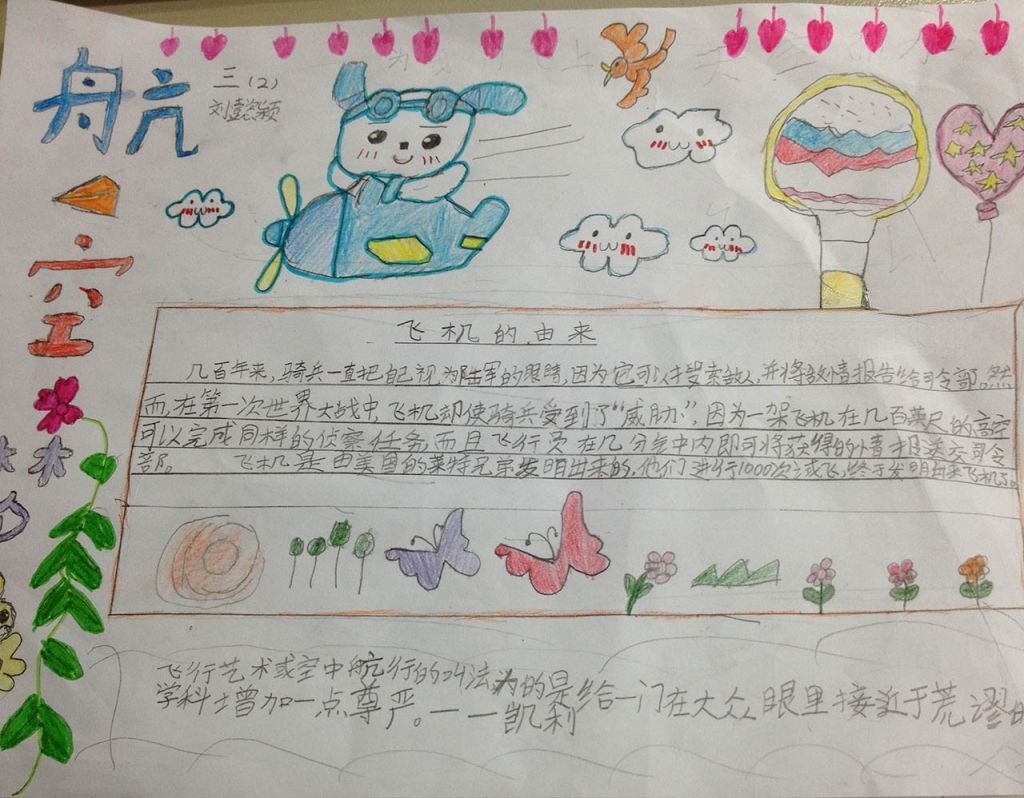 航
空
三（2）
刘懿颖
飞机的由来
几百年来，骑兵一直把自己视为陆军的眼睛，因为它可以搜索敌人，并将敌情报告给司令部。然
而，在第一次世界大战中，飞机却使骑兵受到了“威胁”，因为一架飞机在几百英尺的高空
可以完成同样的侦察任务，而且飞行员在几分钟内即可将获得的情报送交司令
部。 飞机是由美国的莱特兄弟发明出来的，他们进行1000次试飞，终于发明出来飞机了。
飞行艺术或空中航行的叫法为的是给一门在大众眼里接近于荒谬的
学科增加一点尊严。——凯利